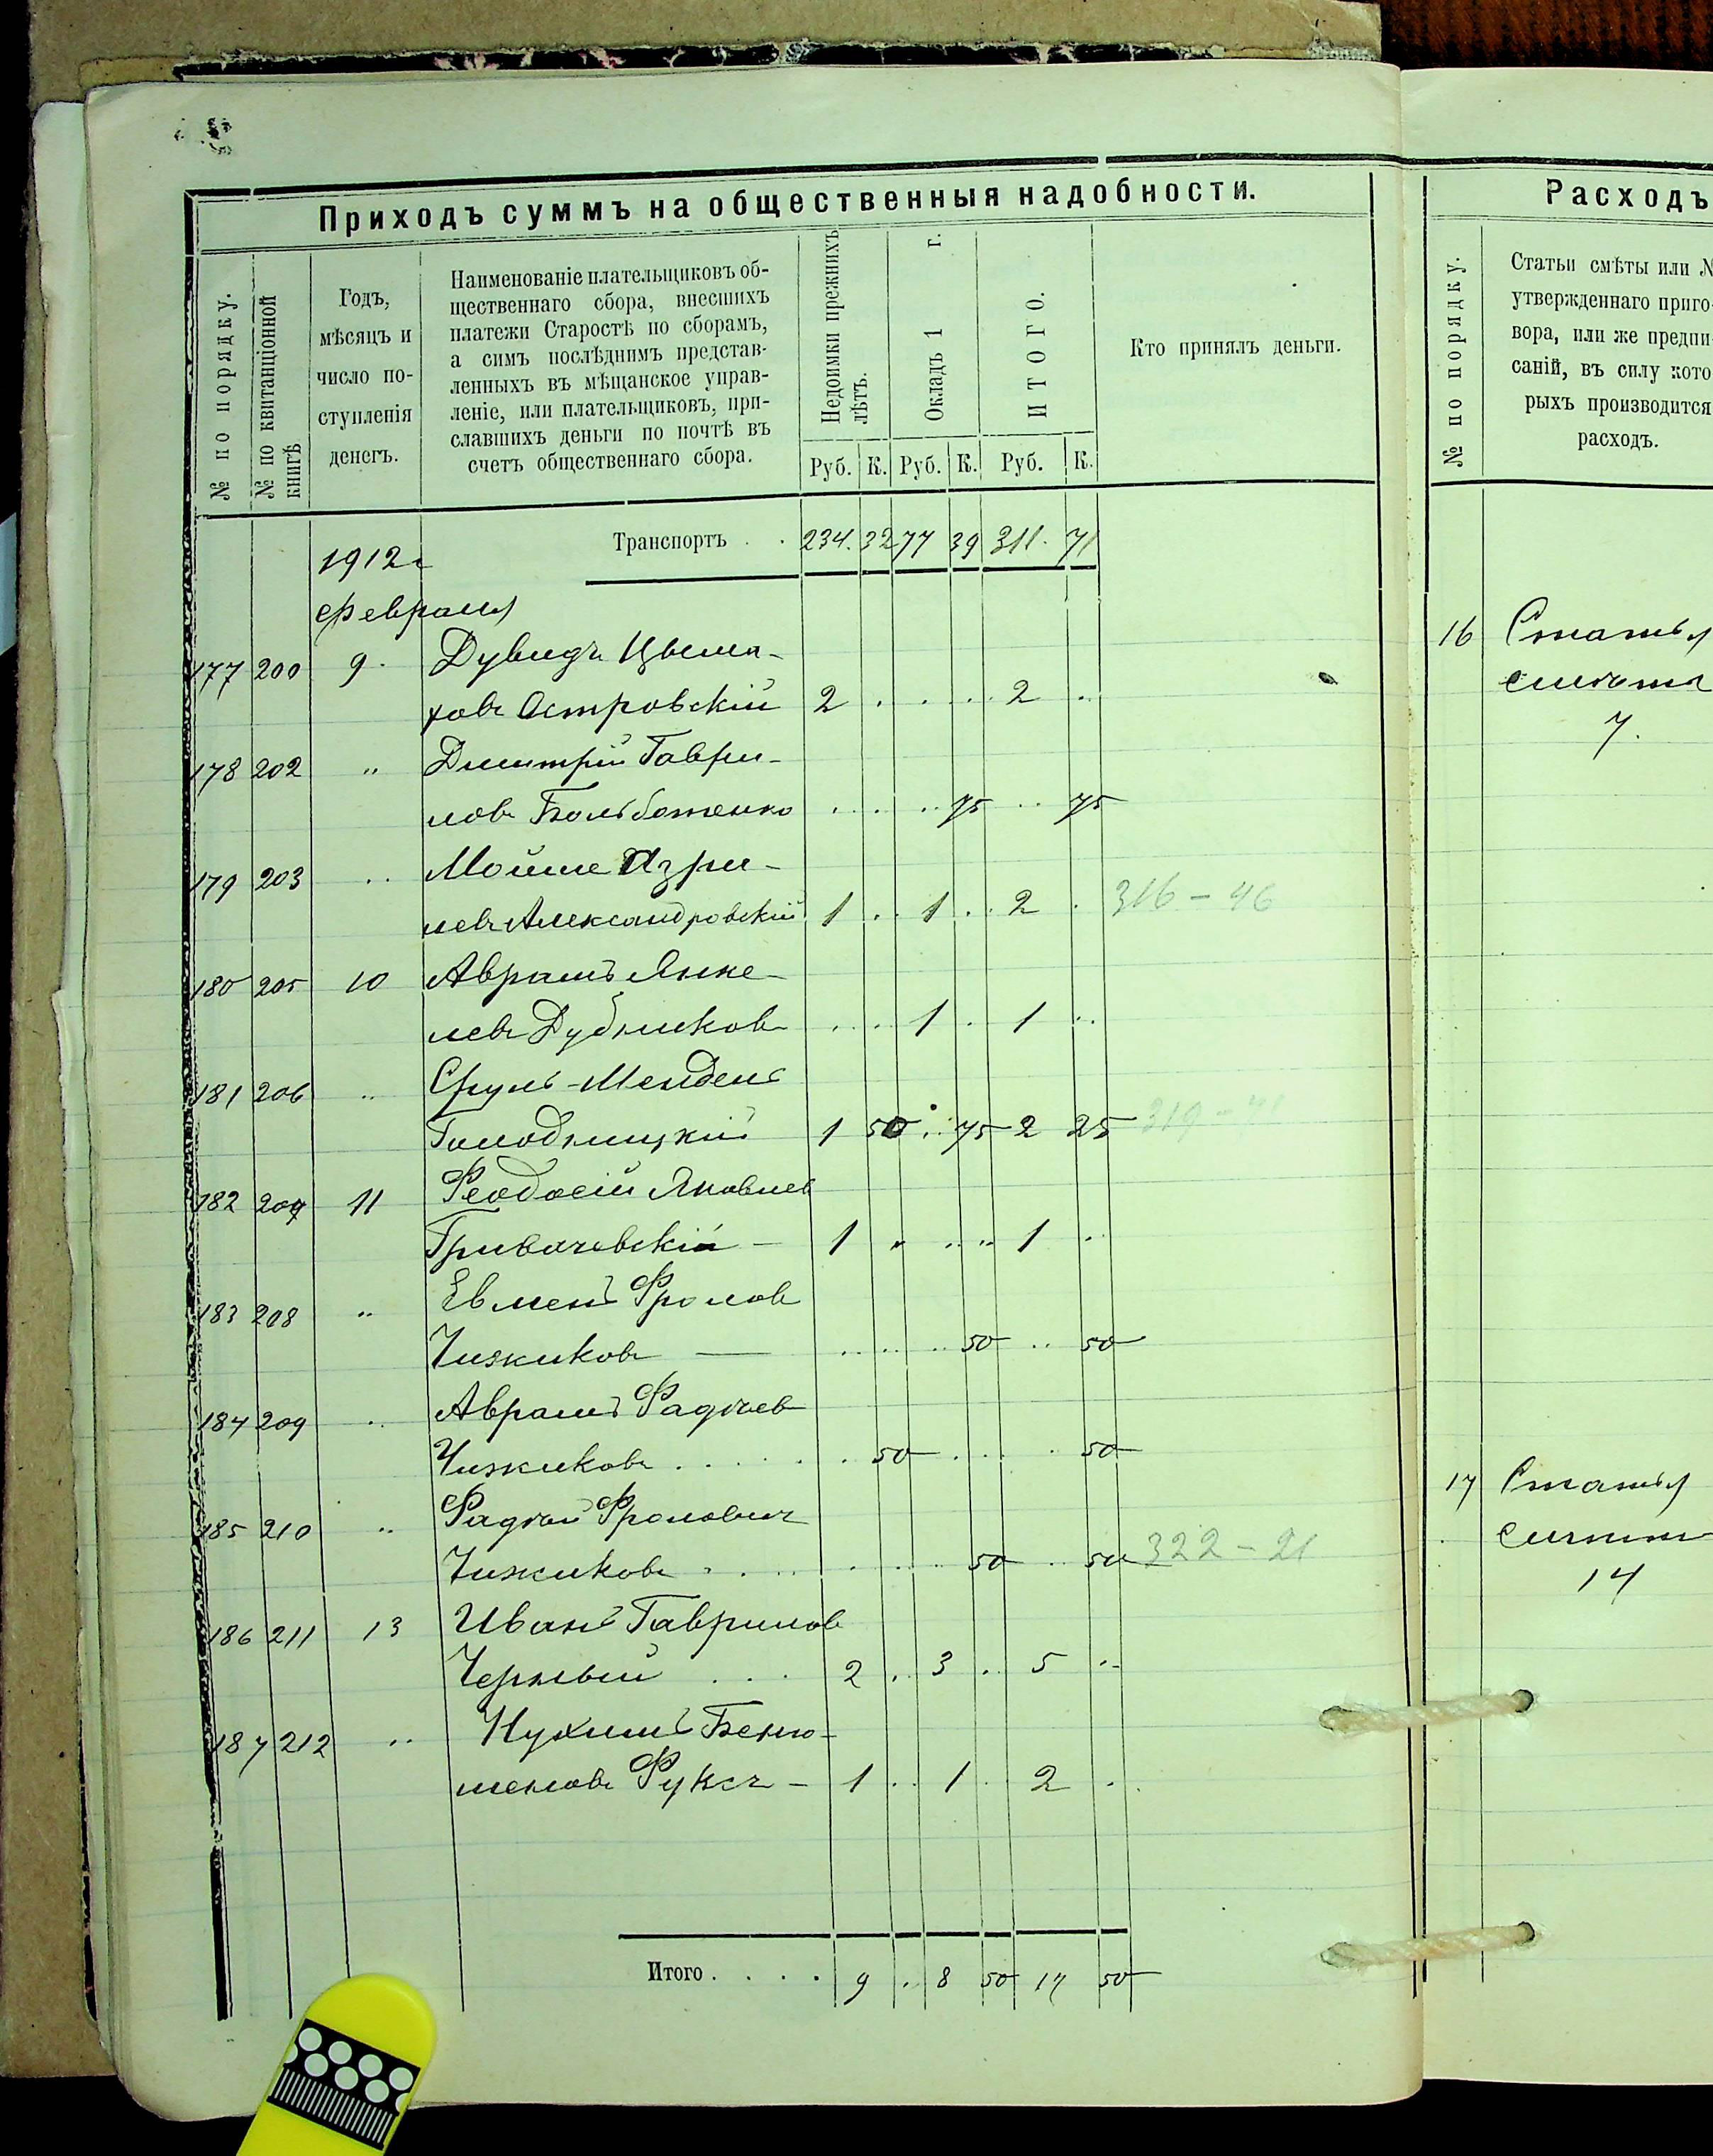 Приходъ суммъ на общественныя надобности.
№ по порядку.
№ по квитанціонной
книгѣ
Годъ,
мѣсяцъ и
число по-
ступленія
денегъ.
Наименованіе плательщиковъ об-
щественнаго сбора, внесшихъ
платежи Старостѣ по сборамъ,
а симъ послѣднимъ представ-
ленныхъ въ мѣщанское управ-
леніе, или плательщиковъ, при-
славшихъ деньги по почтѣ въ
счетъ общественнаго сбора.
Недоимки прежнихъ
лѣтъ.
Окладъ 1 г.
ИТОГО.
Руб. К. Руб. К. Руб. К.
Кто принялъ деньги.
Транспортъ . . 234. 32 77 39 311. 71
1912 г
Февраля
177 200 9. Дувидъ Цема-
ховъ Островскій 2 . . . . 2 ..
178 202 " Дмитрій Гаври-
ловъ Больботенко . . . .. 75 .. 75
179 203 .. Мойше Азри-
левъ Александровскій 1 .. 1 .. 2 . 316 - 46
180 205 10 Аврамъ Янке-
левъ Дубниковъ . . . . 1 . 1 ..
181 206 .. Сруль-Мендель
Голодницкій 1 50 .. 75 2 25 319 - 71
182 207 11 Феодосій Яковлев
Гривачевскій — 1 " .. .. 1 ..
183 208 .. Евменъ Фролов
Чижиковъ — . . . . .. 50 .. 50
184 209 .. Аврамъ Фадѣев
Чижиковъ . . . . . . 50 . . . . 50
185 210 .. Фадѣй Фролович
Чижиковъ . . . . . . . 50 .. 50 322 - 21
186 211 13 Иванъ Гаврилов
Черный . . . 2 .. 3 .. 5 ..
187 212 .. Нухимъ Беню-
меновъ Фуксъ — 1 .. 1 .. 2 .
Итого . . . . 9 . 8 50 17 50
Расходъ
№ по порядку.
Статьи смѣты или №
утвержденнаго приго-
вора, или же предпи-
саній, въ силу кото-
рыхъ производится
расходъ.
16 Статья
смѣты
7.
17 Статья
смѣты
14